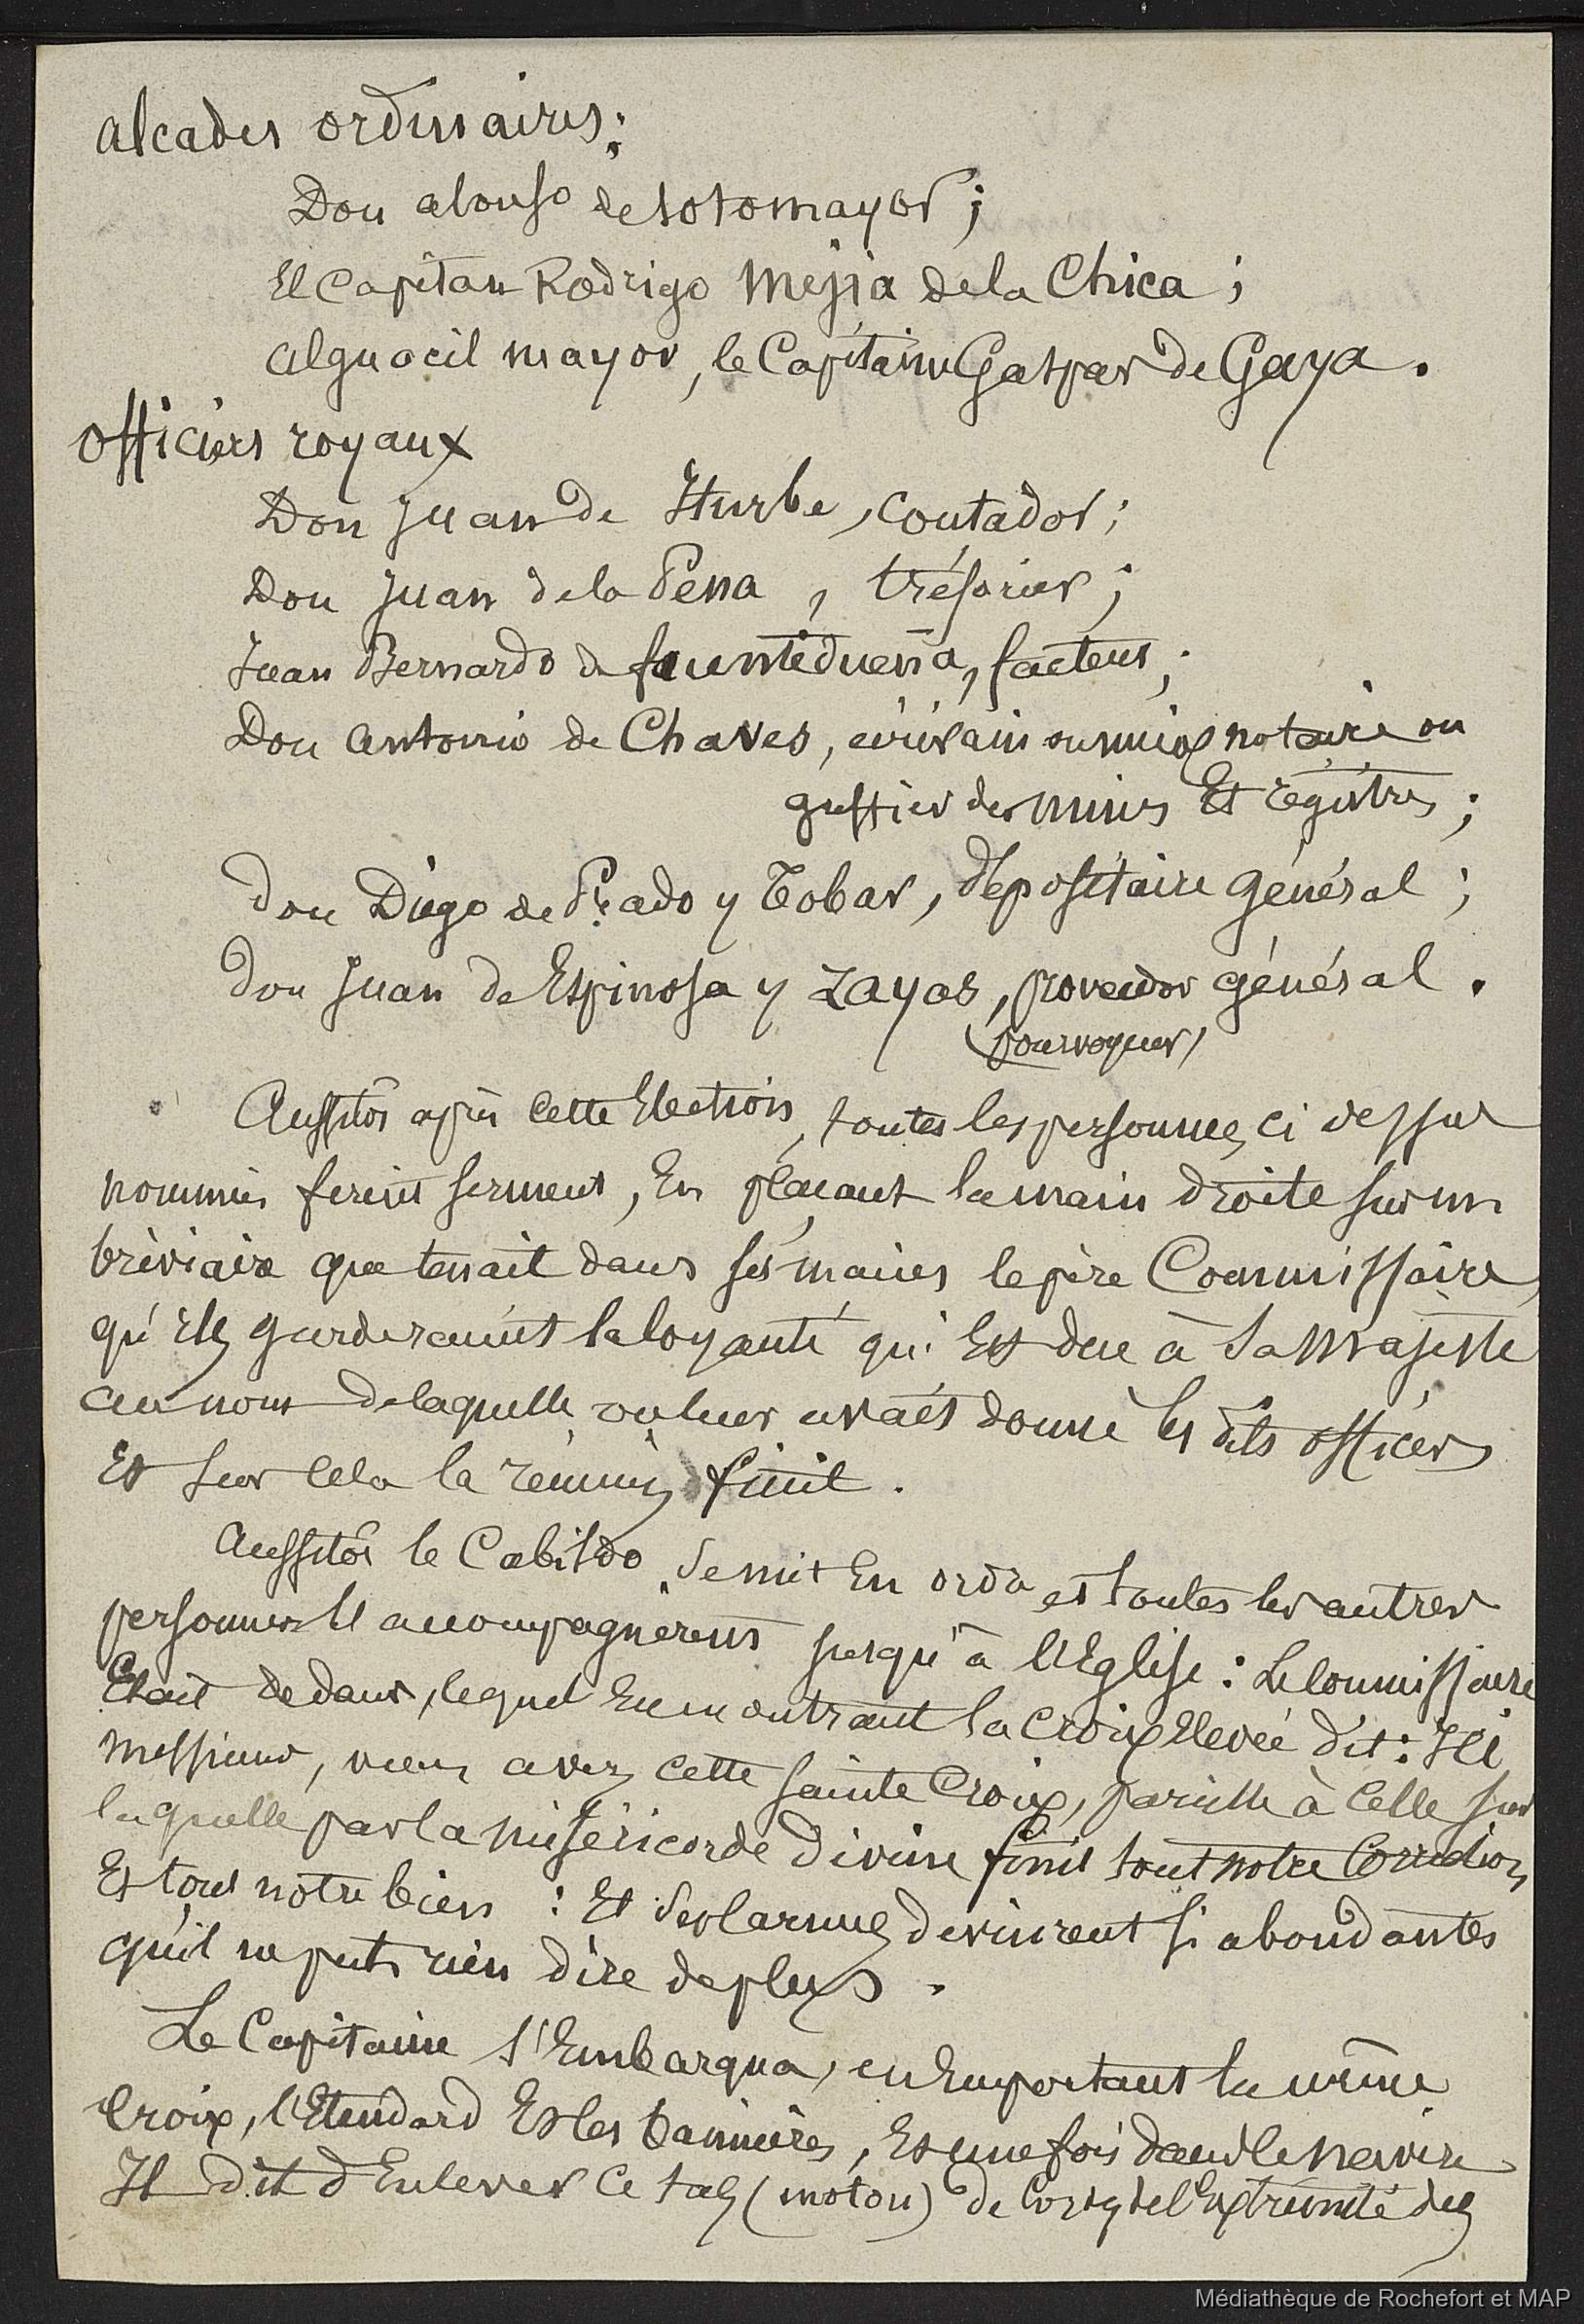 alcades ordinaires:
Don alonso de sotomayor;
El Capitan Rodrigo Mejia de la Chica;
alguacil mayor, le Capitaine Gaspar de Gaya.
officiers royaux
Don Juan de Iturbe, contador;
Don Juan de la Pena, trésorier;
Juan Bernardo de fuentidueña, facteur;
Don Antonio de Chaves, écrivain ou mieux notaire ou
greffier des mines Et régistres;
don Diego de Prado y Tobar, dépositaire général;
don Juan de Espinosa y Zayas, proveidor général.
(pourvoyeur)
Aussitôt après cette Election, toutes les personnes ci dessus
nommées firent serment, En plaçant la main droite sur un
bréviaire que tenait dans ses mains le père Commissaire,
qu'Elles garderaient la loyauté qui Est due à Sa Majesté
au nom de laquelle on leur avait donné les dits offices
Et sur cela la réunion finit.
Aussitôt le Cabildo se mit En ordre et toutes les autres
personnes l'accompagnèrent jusqu'à l'Eglise: Le Commissaire
Etait dedans, lequel En montrant la Croix Elevée dit: Ici
messieurs, vous avez cette sainte Croix, pareille à Celle sur
laquelle par la miséricorde divine finit tout notre
Et tout notre bien: Et ses larmes devinrent si abondantes
qu'il ne put rien dire de plus.
Le Capitaine s'Embarqua, en Emportant la même
Croix, l'Etendard Et les bannières, Et une fois dans le navire
Il dit d'Enlever ce (moton) de l'Extrémité des